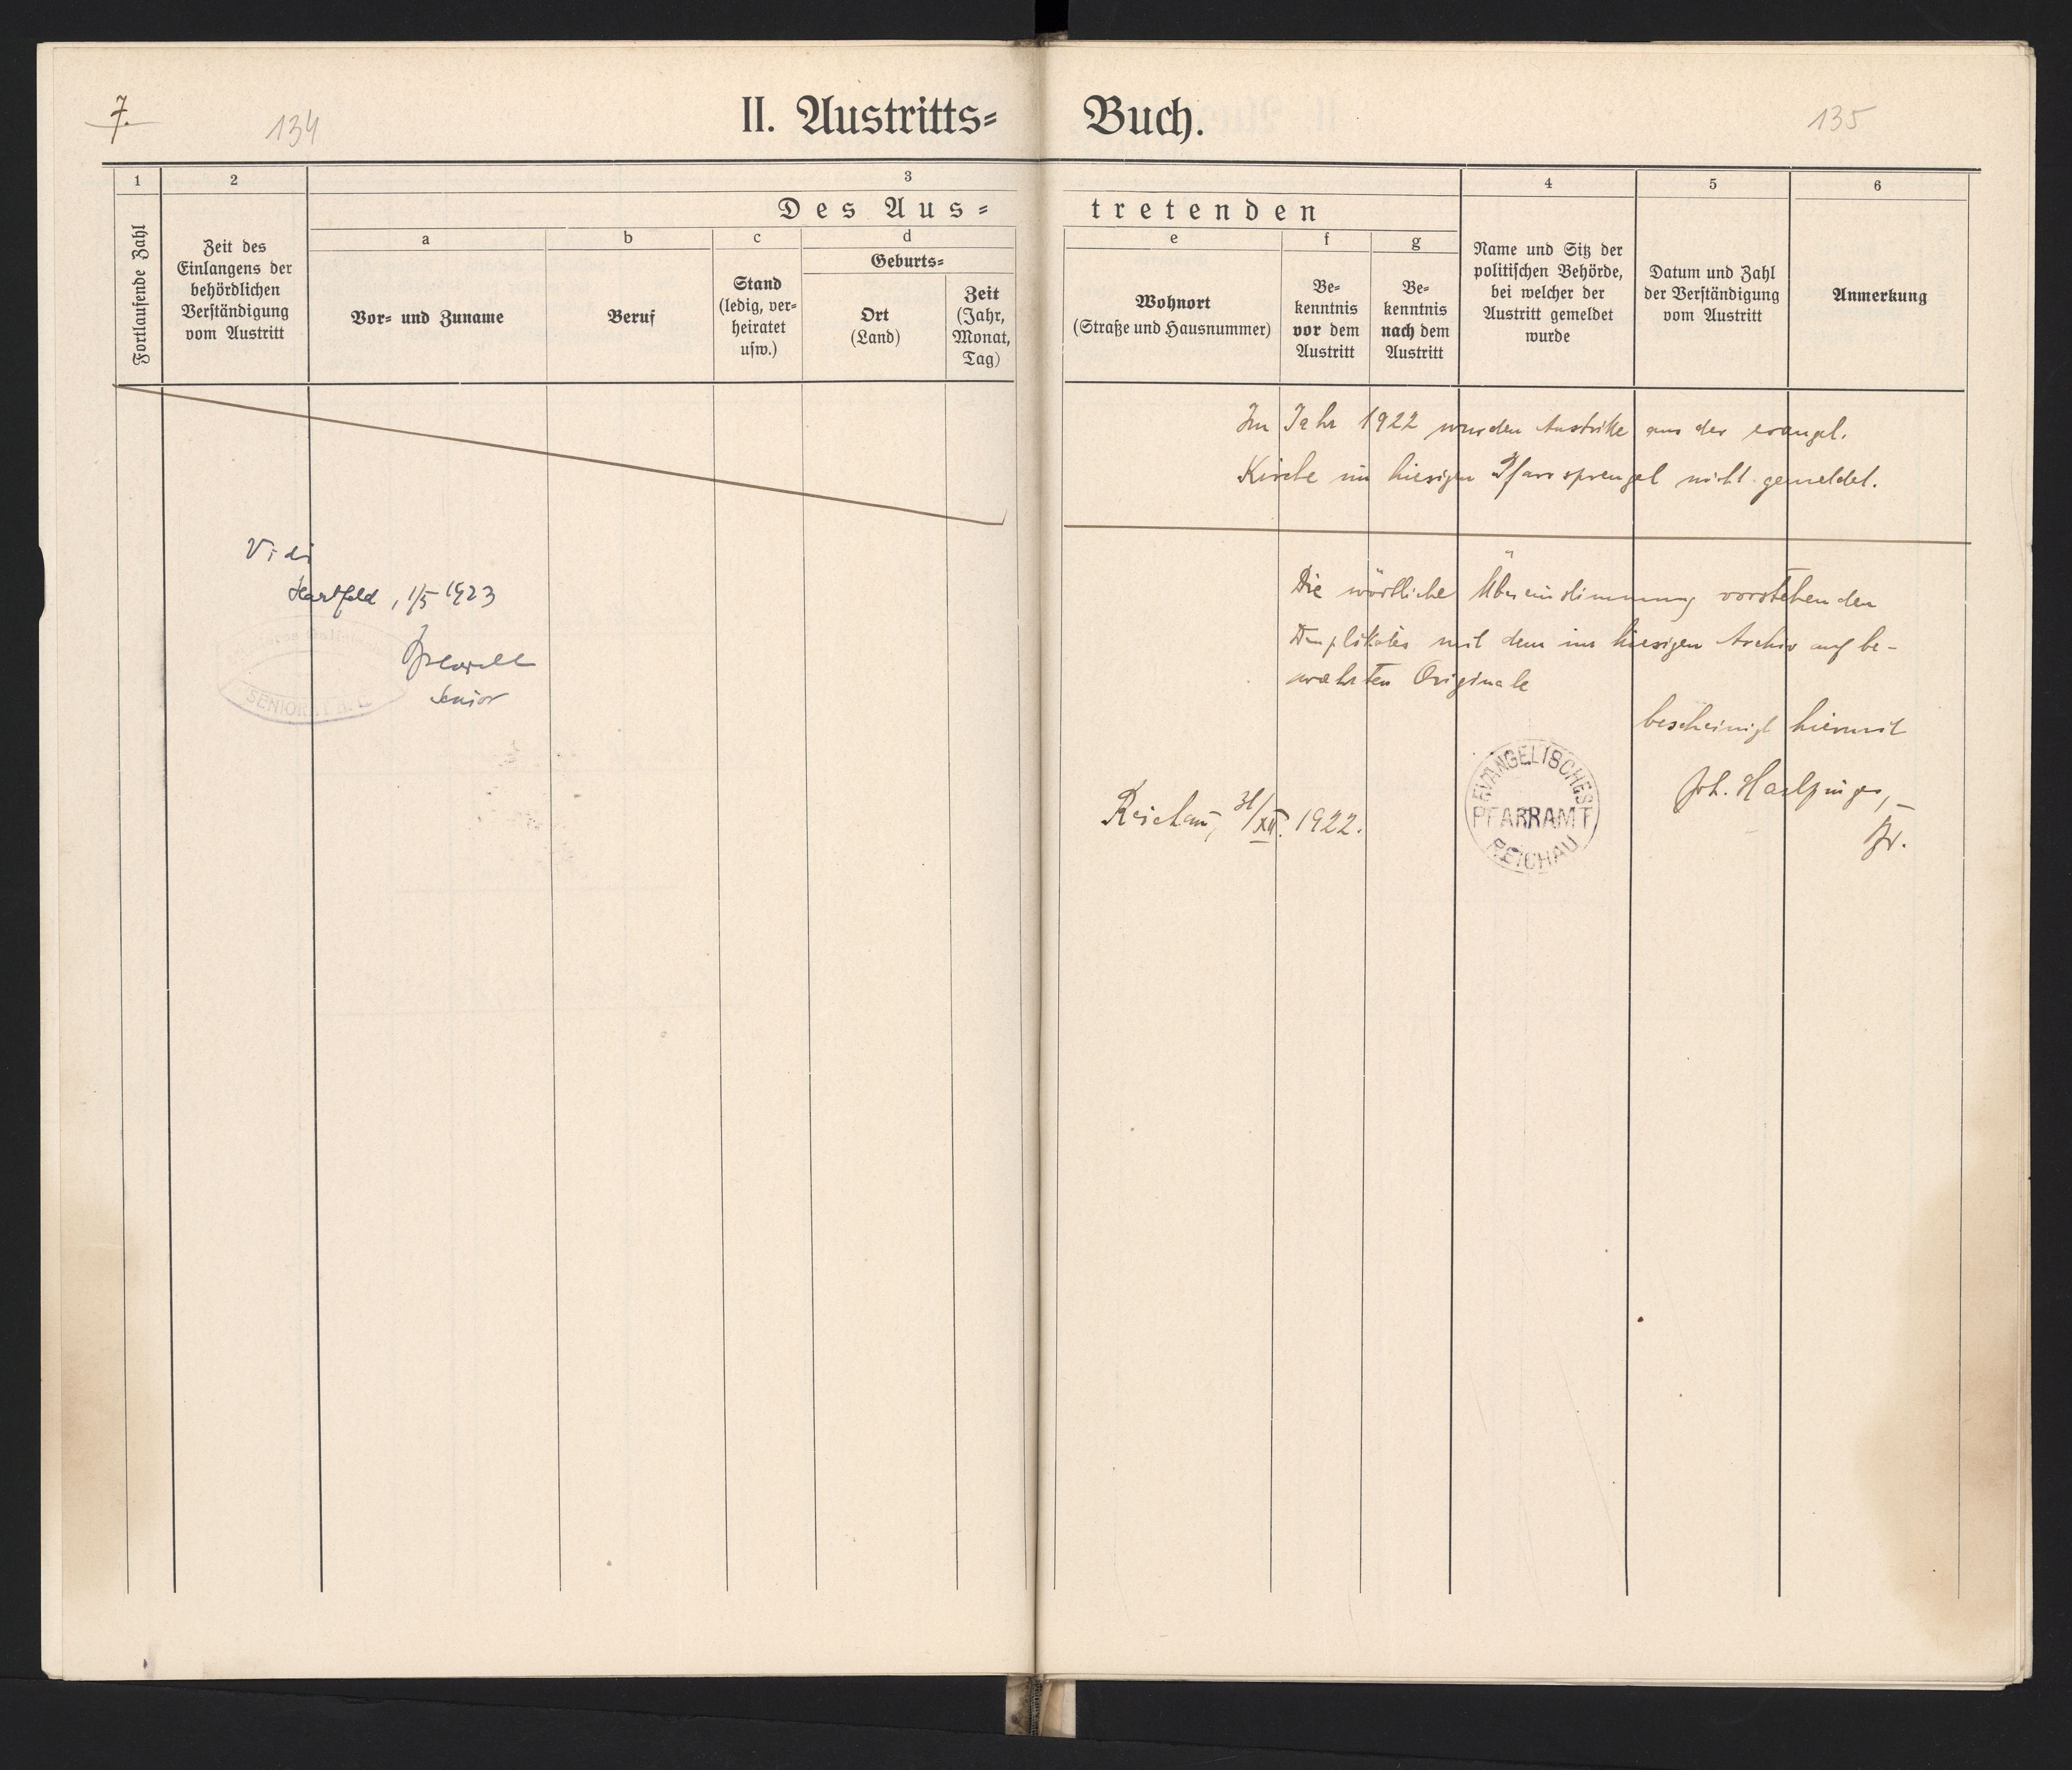 7.
134
II. Austritts=
Buch.
135
1
2
3
4
5
6
Des Aus=
tretenden
Fortlaufende Zahl
Zeit des
Einlangens der
behördlichen
Verständigung
vom Austritt
a
b
c
d
e
f
g
Vor= und Zuname
Beruf
Stand
(ledig, ver=
heiratet
usw.)
Geburts=
Ort
(Land)
Zeit
(Jahr,
Monat,
Tag)
Wohnort
(Straße und Hausnummer)
Be=
kenntnis
vor dem
Austritt
Be=
kenntnis
nach dem
Austritt
Name und Sitz der
politischen Behörde,
bei welcher der
Austritt gemeldet
wurde
Datum und Zahl
der Verständigung
vom Austritt
Anmerkung
Im Jahr 1922 wurden Austritte aus der evangel.
Kirche im hiesigen Pfarrsprengel nicht gemeldet.
Vidi
Hartfeld, 1/5 1923
Senior
SENIORAT
Die wörtliche Übereinstimmung vorstehenden
Duplikates mit dem im hiesigen Archiv aufbe-
wahrten Originale
bescheinigt hiermit
Reichau, 31/XII. 1922.
EVANGELISCHES
PFARRAMT
REICHAU
Joh.
Pfr.